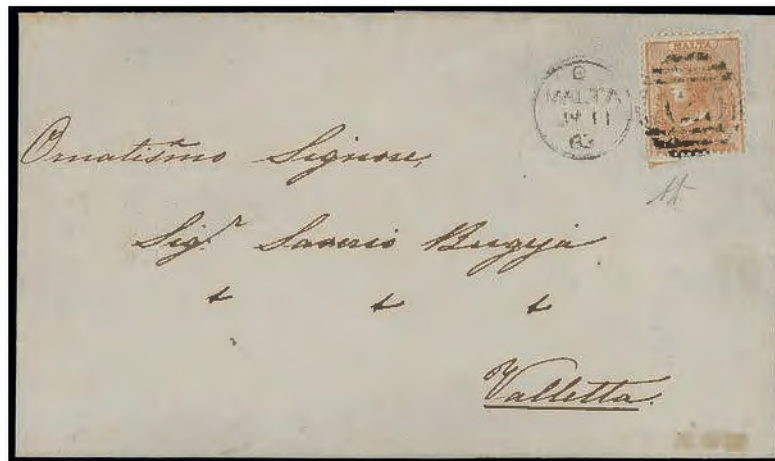 MALTA
B
MALTA
63
Ornatismo Signore,
Sigr. Saverio Bugeja
Valletta.